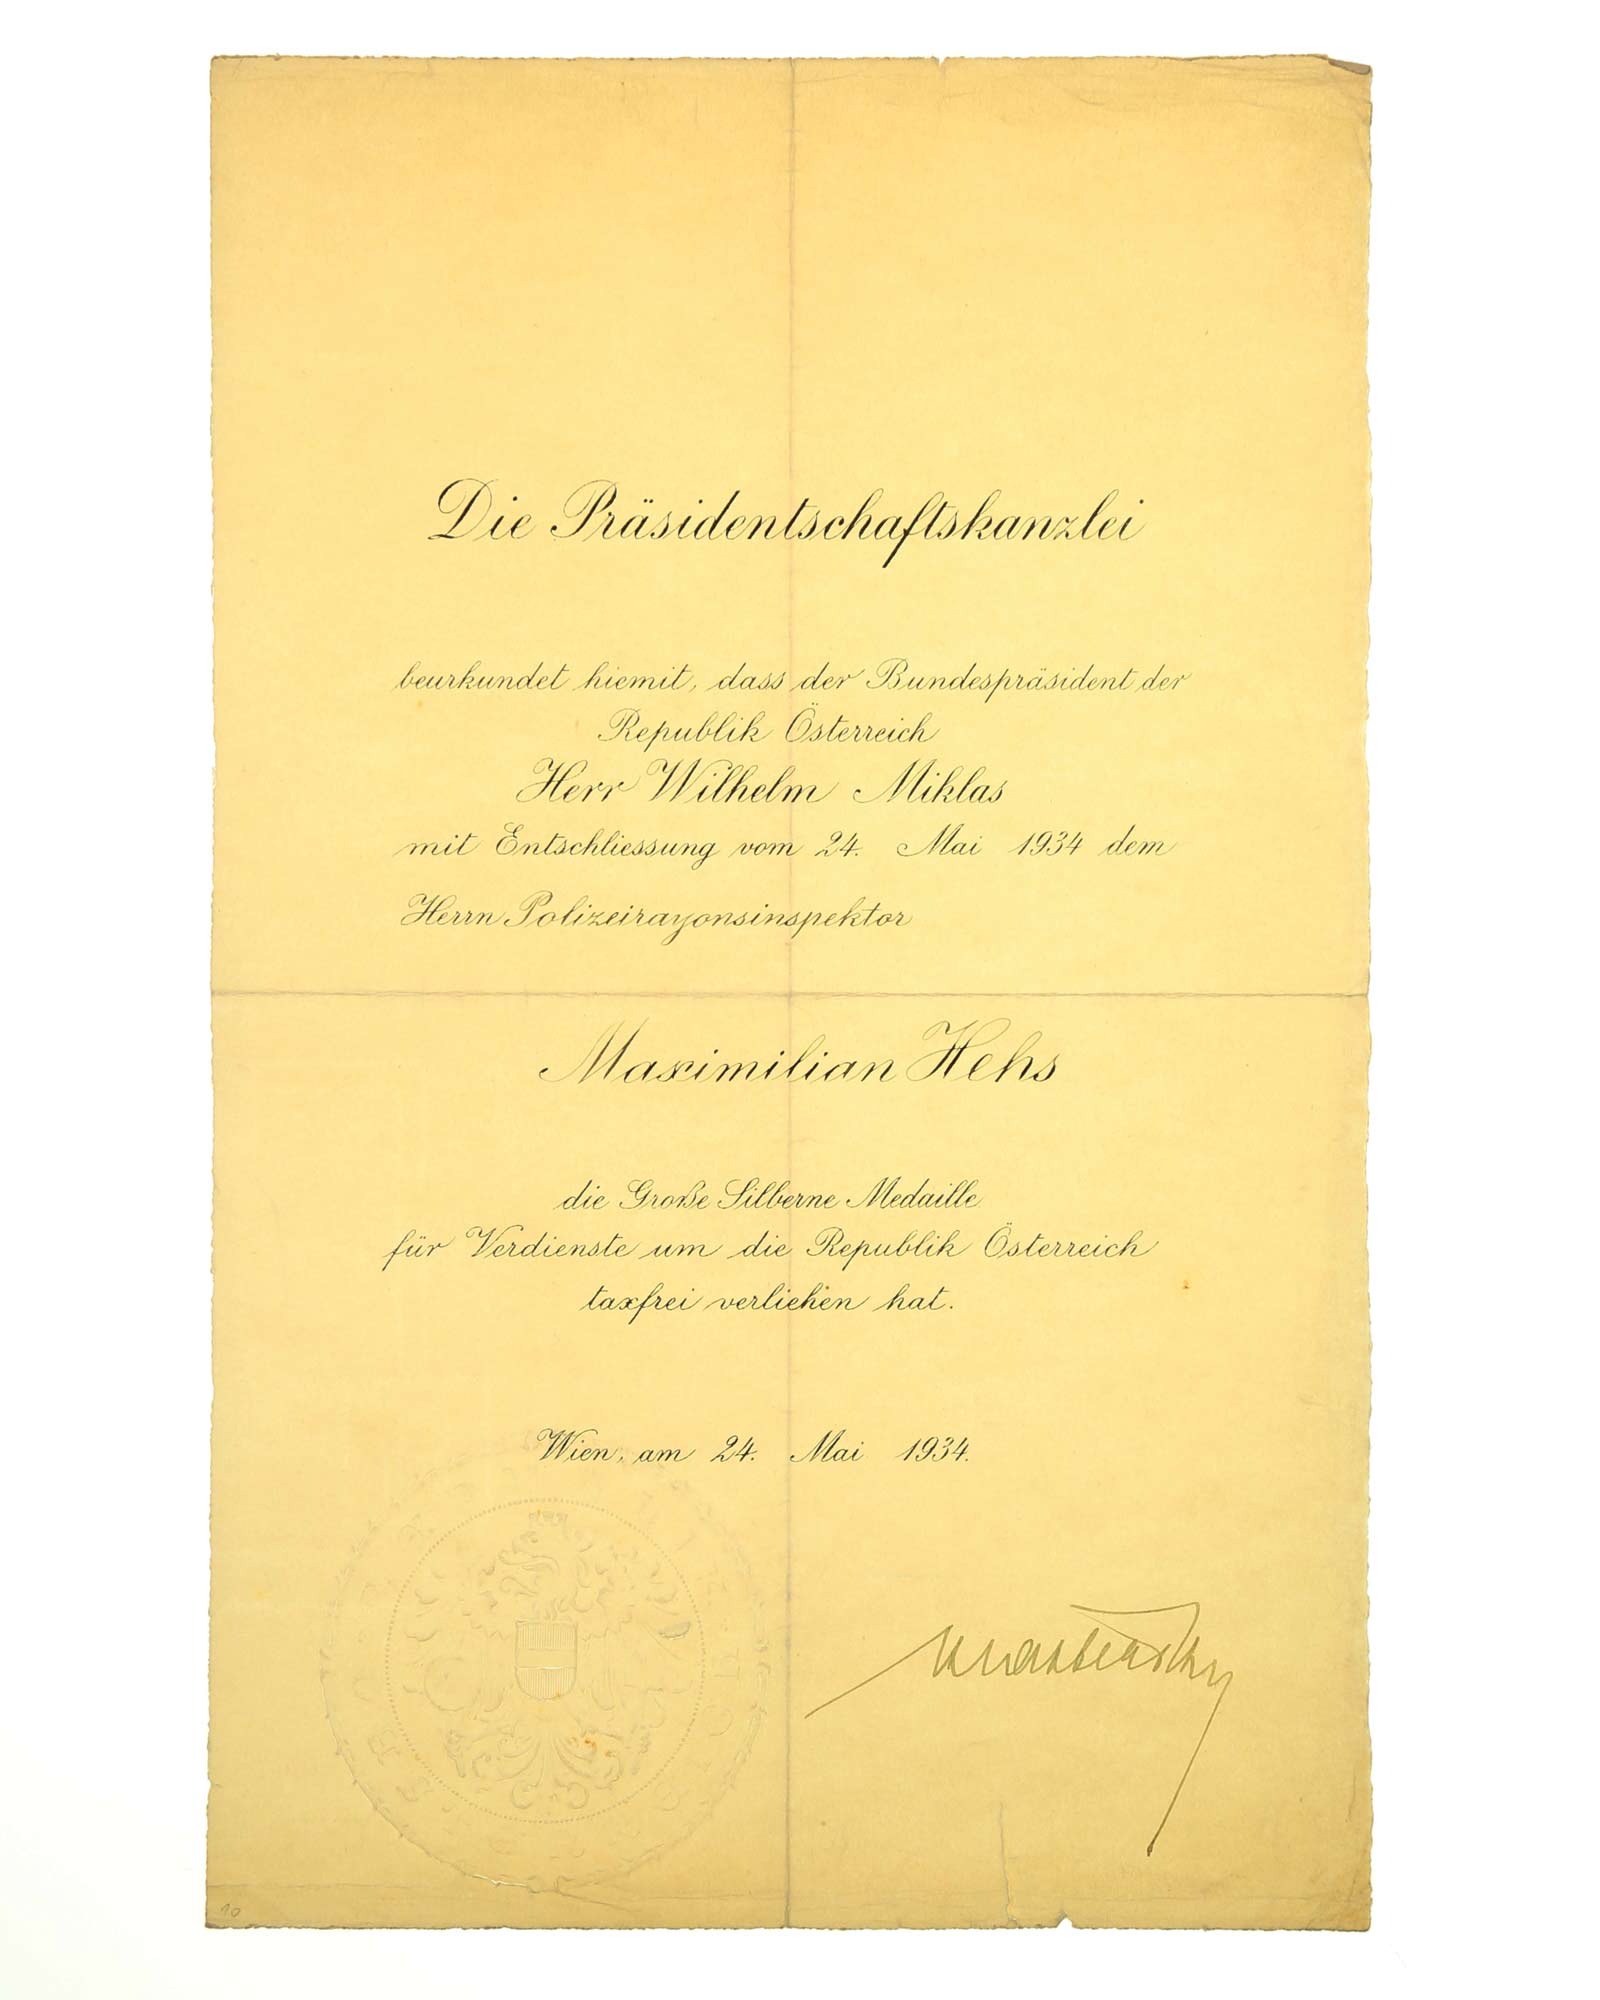 Die Präsidentschaftskanzlei
beurkundet hiemit, dass der Bundespräsident der
Republik Österreich
Herr Wilhelm Miklas
mit Entschliessung vom 24. Mai 1934 dem
Herrn Polizeirayonsinspektor
Maximilian Hehs
die Große Silberne Medaille
für Verdienste um die Republik Österreich
taxfrei verliehen hat.
Wien, am 24. Mai 1934.
10